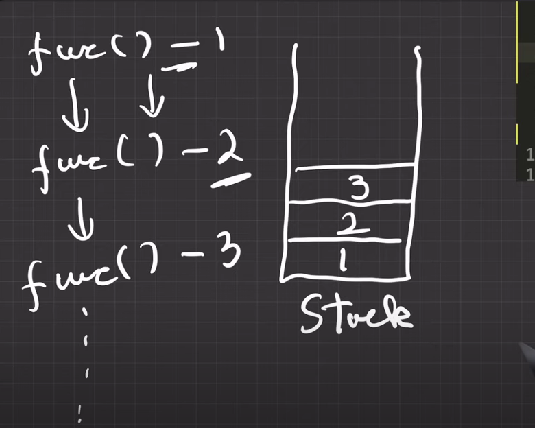 func() = 1
func() - 2
func() - 3
3
2
1
Stack
1
1